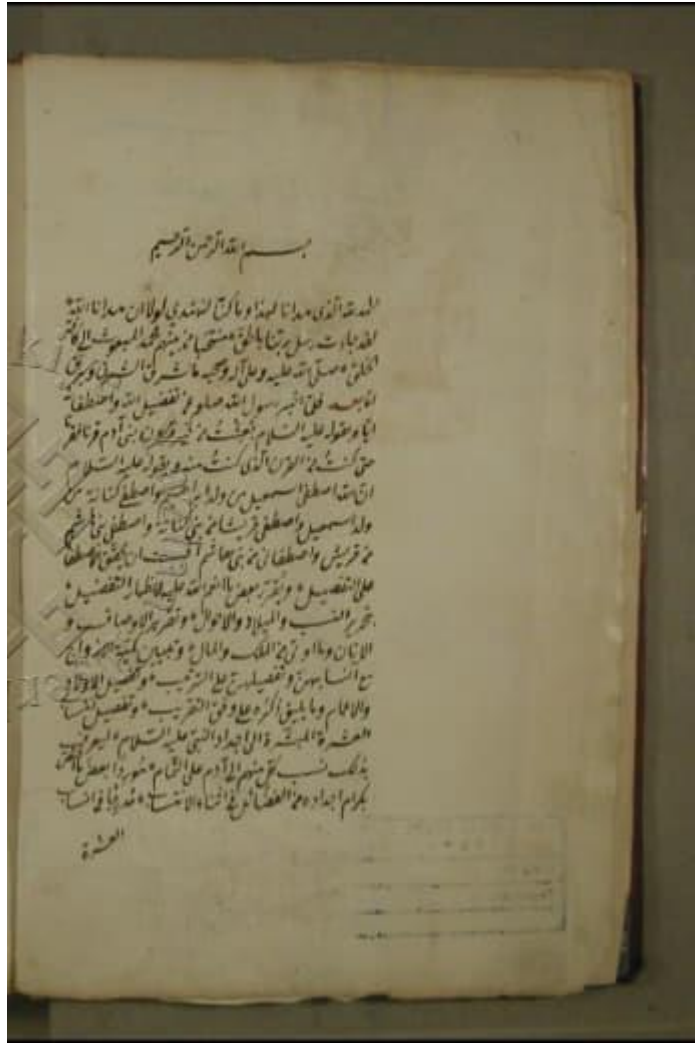 بسم الله الرحمن الرحيم
الحمد لله الذي هدانا لهذا وما كنا لنهتدي لولا ان هدانا الله
لقد جاءت رسل ربنا بالحق منتخبا من بينهم محمد المبعوث الى كافة
الخلق صلى الله عليه وعلى آله وصحبه ما شرق الشرق وبرق
اما بعد فلما اخبر رسول الله صلعم عن تفضيل الله واصطفائه
اياه بقوله عليه السلام بعثت من خير قرون بنى آدم قرنا فقرنا
حتى كنت من القرن الذي كنت منه وبقوله عليه السلام
ان الله اصطفى اسمعيل من ولد ابراهيم واصطفى كنانة من
ولد اسمعيل واصطفى قريشا من بنى كنانة واصطفى بنى هاشم
من قريش واصطفانى من بنى هاشم ان الاصطفاء
على التفضيل وتقرير بعض ما انعم الله عليه لاظهار التفضيل
بتحرير النسب والميلاد والاحوال وتقرير الاوصاف و
من الملك والمال وتبيين كمية الازواج
مع انسابهن وتفصيلهن على الترتيب وتحصيل الاولاد
والاعمام وما يليق ذكره على وفق التقريب وتفصيل انساب
العشرة المبشرة الى اجداد النبى عليه السلام ليعرف
بذلك نسب كل منهم الى آدم على التمام موردا بعض ما
بكرام اجداده من الفضائل فى اثناء الانتساب فى انساب
العشرة